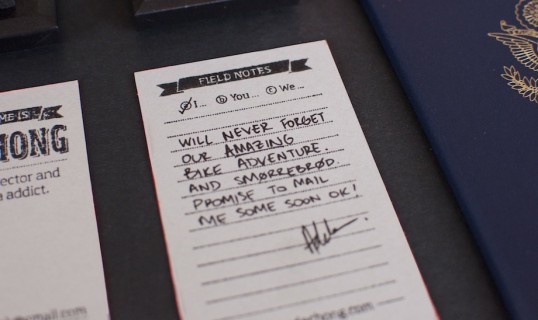 ME IS:
HONG
ector and
addict.
@gmail.com
FIELD NOTES
ⓐ I... ⓑ You... ⓒ We...
WILL NEVER FORGET
OUR AMAZING
BIKE ADVENTURE.
AND SMØRREBRØD.
PROMISE TO MAIL
ME SOME SOON OK!
chong.com